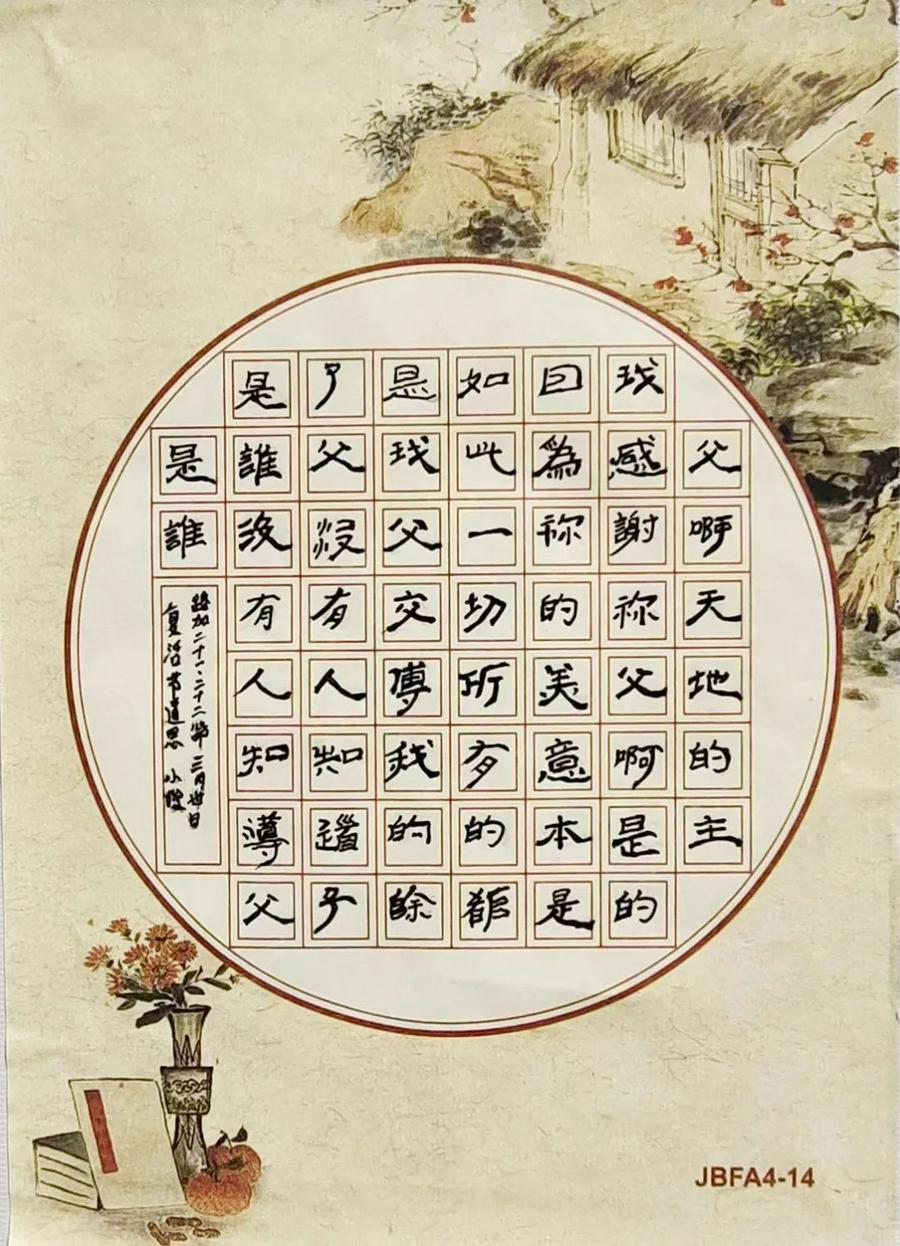 父啊天地的主
我感謝祢父啊是的
因為祢的美意本是
如此一切所有的都
是我父交傳我的除
了父沒有人知道子
是誰沒有人知導父
是誰
路加二十一、二十二節 三月日
复活节道思 小
JBFA4-14